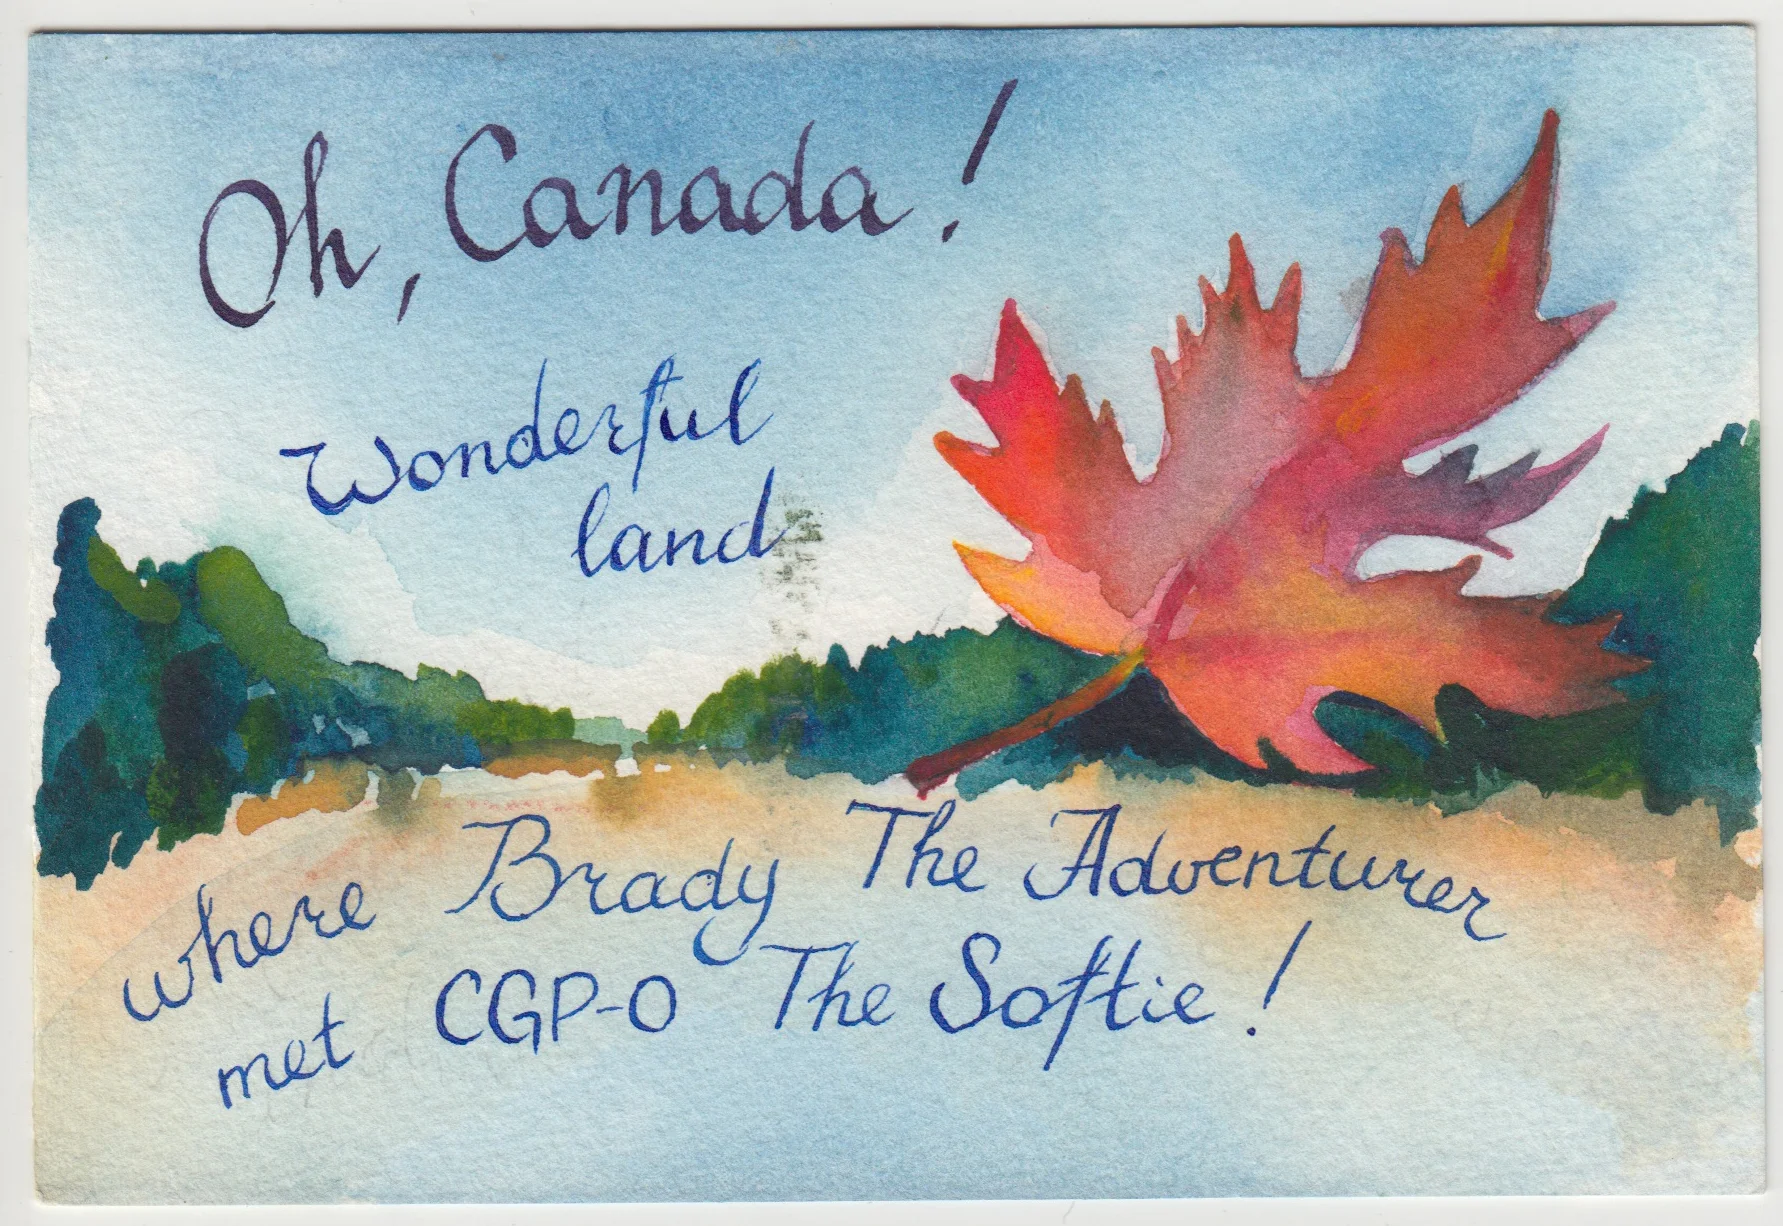 Oh, Canada!
Wonderful
land
where Brady The Adventurer
met CGP-O The Softie!